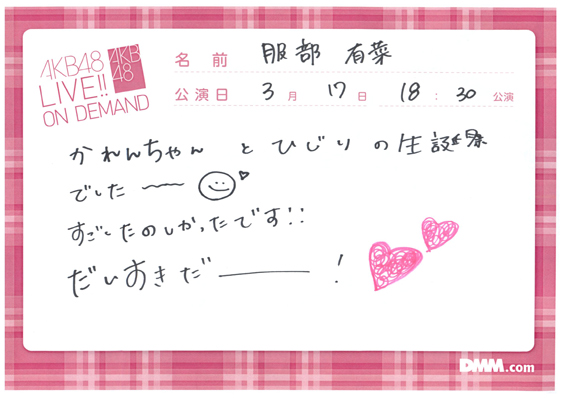 AKB48
LIVE!!
ON DEMAND
AKB
48
名前 服部 有菜
公演日 3月 17日 18:30 公演
かれんちゃん と ひじり の 生誕祭
でした〜〜
すごーくたのしかったです!!
だいすきだ———!
DMM.com